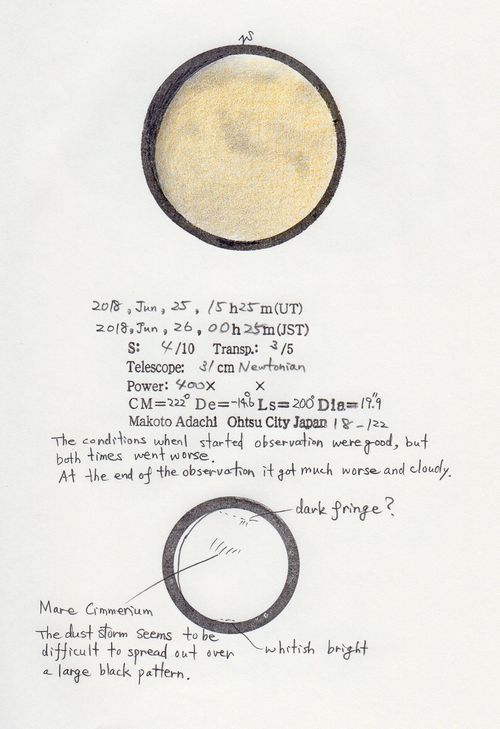 2018, Jun, 25, 15h25m(UT)
2018, Jun, 26, 00h25m(JST)
S: 4/10 Transp.: 3/5
Telescope: 31 cm Newtonian
Power: 400× ×
CM=222° De=-14.6° Ls=200° Dia=19.9"
Makoto Adachi Ohtsu City Japan 18-122
The conditions when I started observation were good, but
both times went worse.
At the end of the observation it got much worse and cloudy.
dark fringe?
Mare Cimmerium
The dust storm seems to be
difficult to spread out over
a large black pattern.
whitish bright